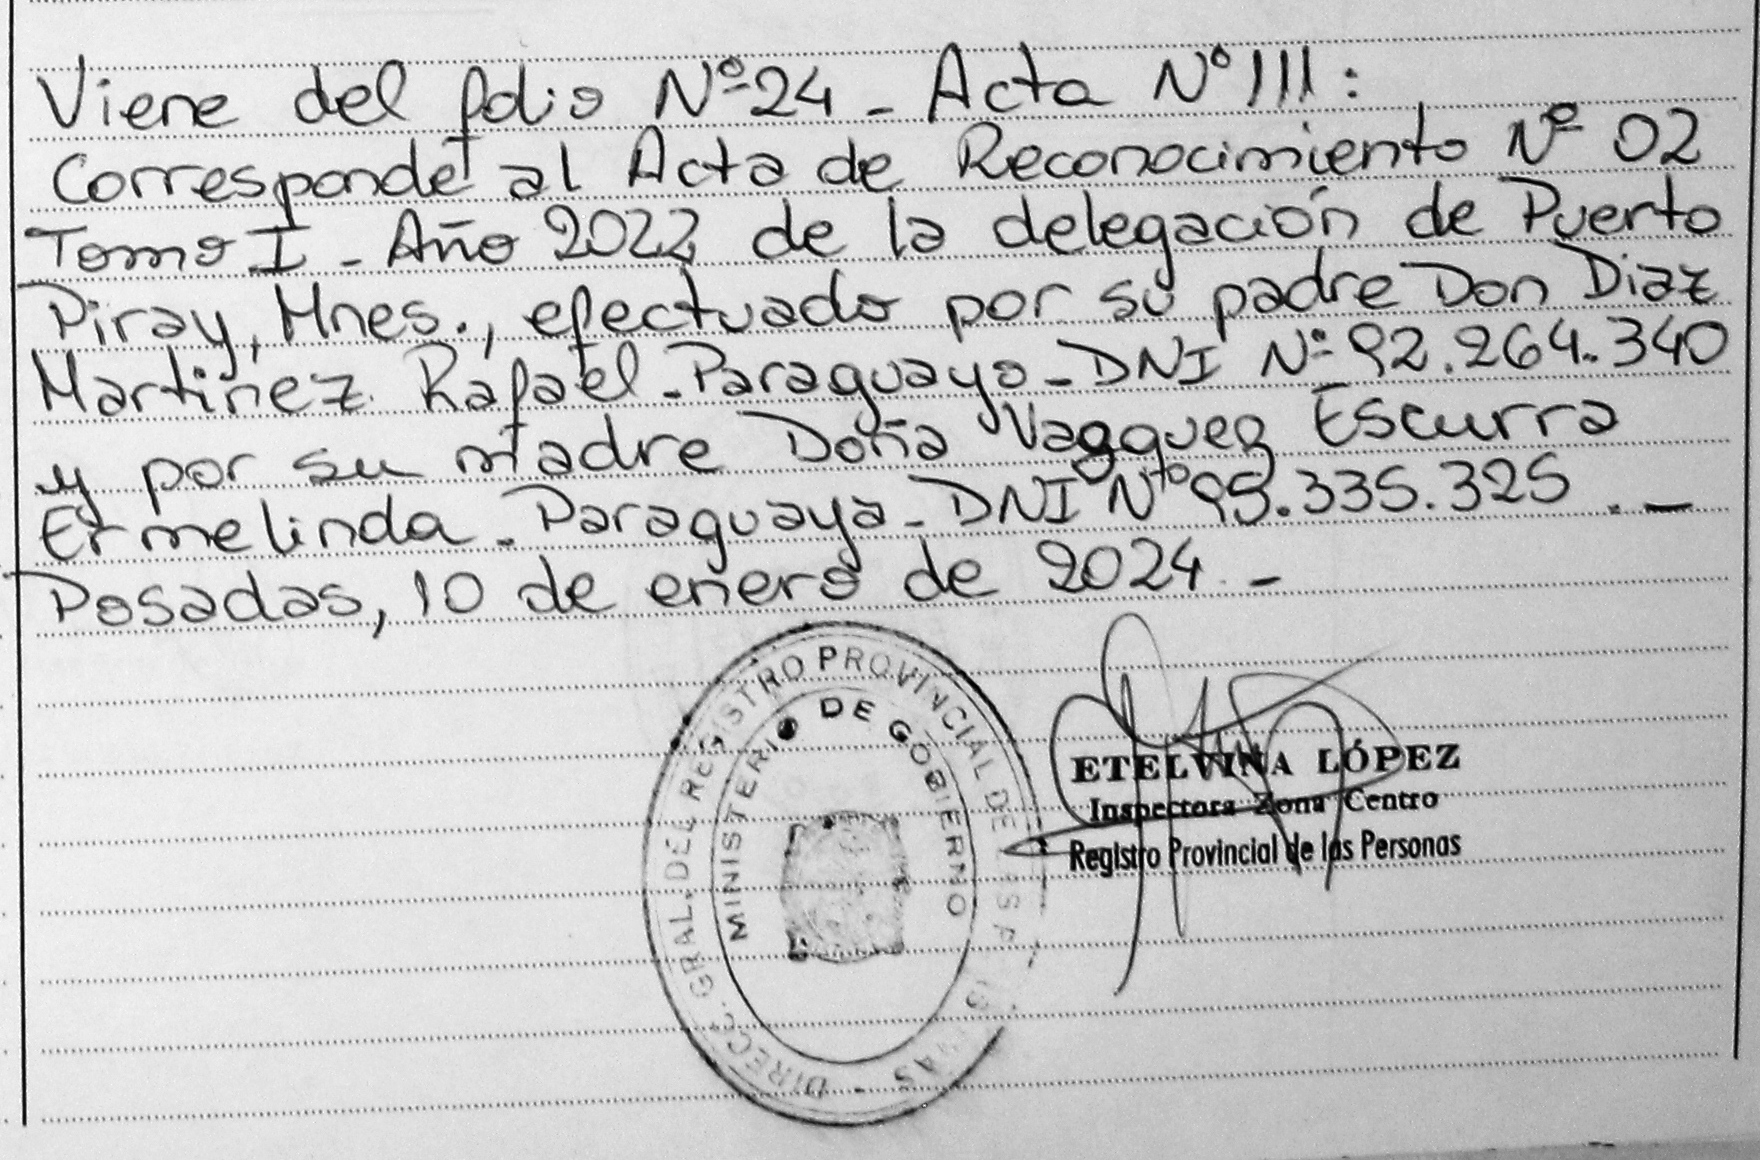 Viene del folio Nº 24 - Acta Nº 111:
Corresponde al Acta de Reconocimiento Nº 02
Tomo I - Año 2022 de la delegación de Puerto
Piray, Mnes., efectuado por su padre Don Diaz
Martinez Rafael - Paraguayo - DNI Nº 92.264.340
y por su madre Doña Vazquez Escurra
Ermelinda - Paraguaya - DNI Nº 95.335.325 . -
Posadas, 10 de enero de 2024. -
DIREC. GRAL. DEL REGISTRO PROVINCIAL DE
MINISTERIO DE GOBIERNO
ETELVINA LÓPEZ
Inspectora Zona Centro
Registro Provincial de las Personas